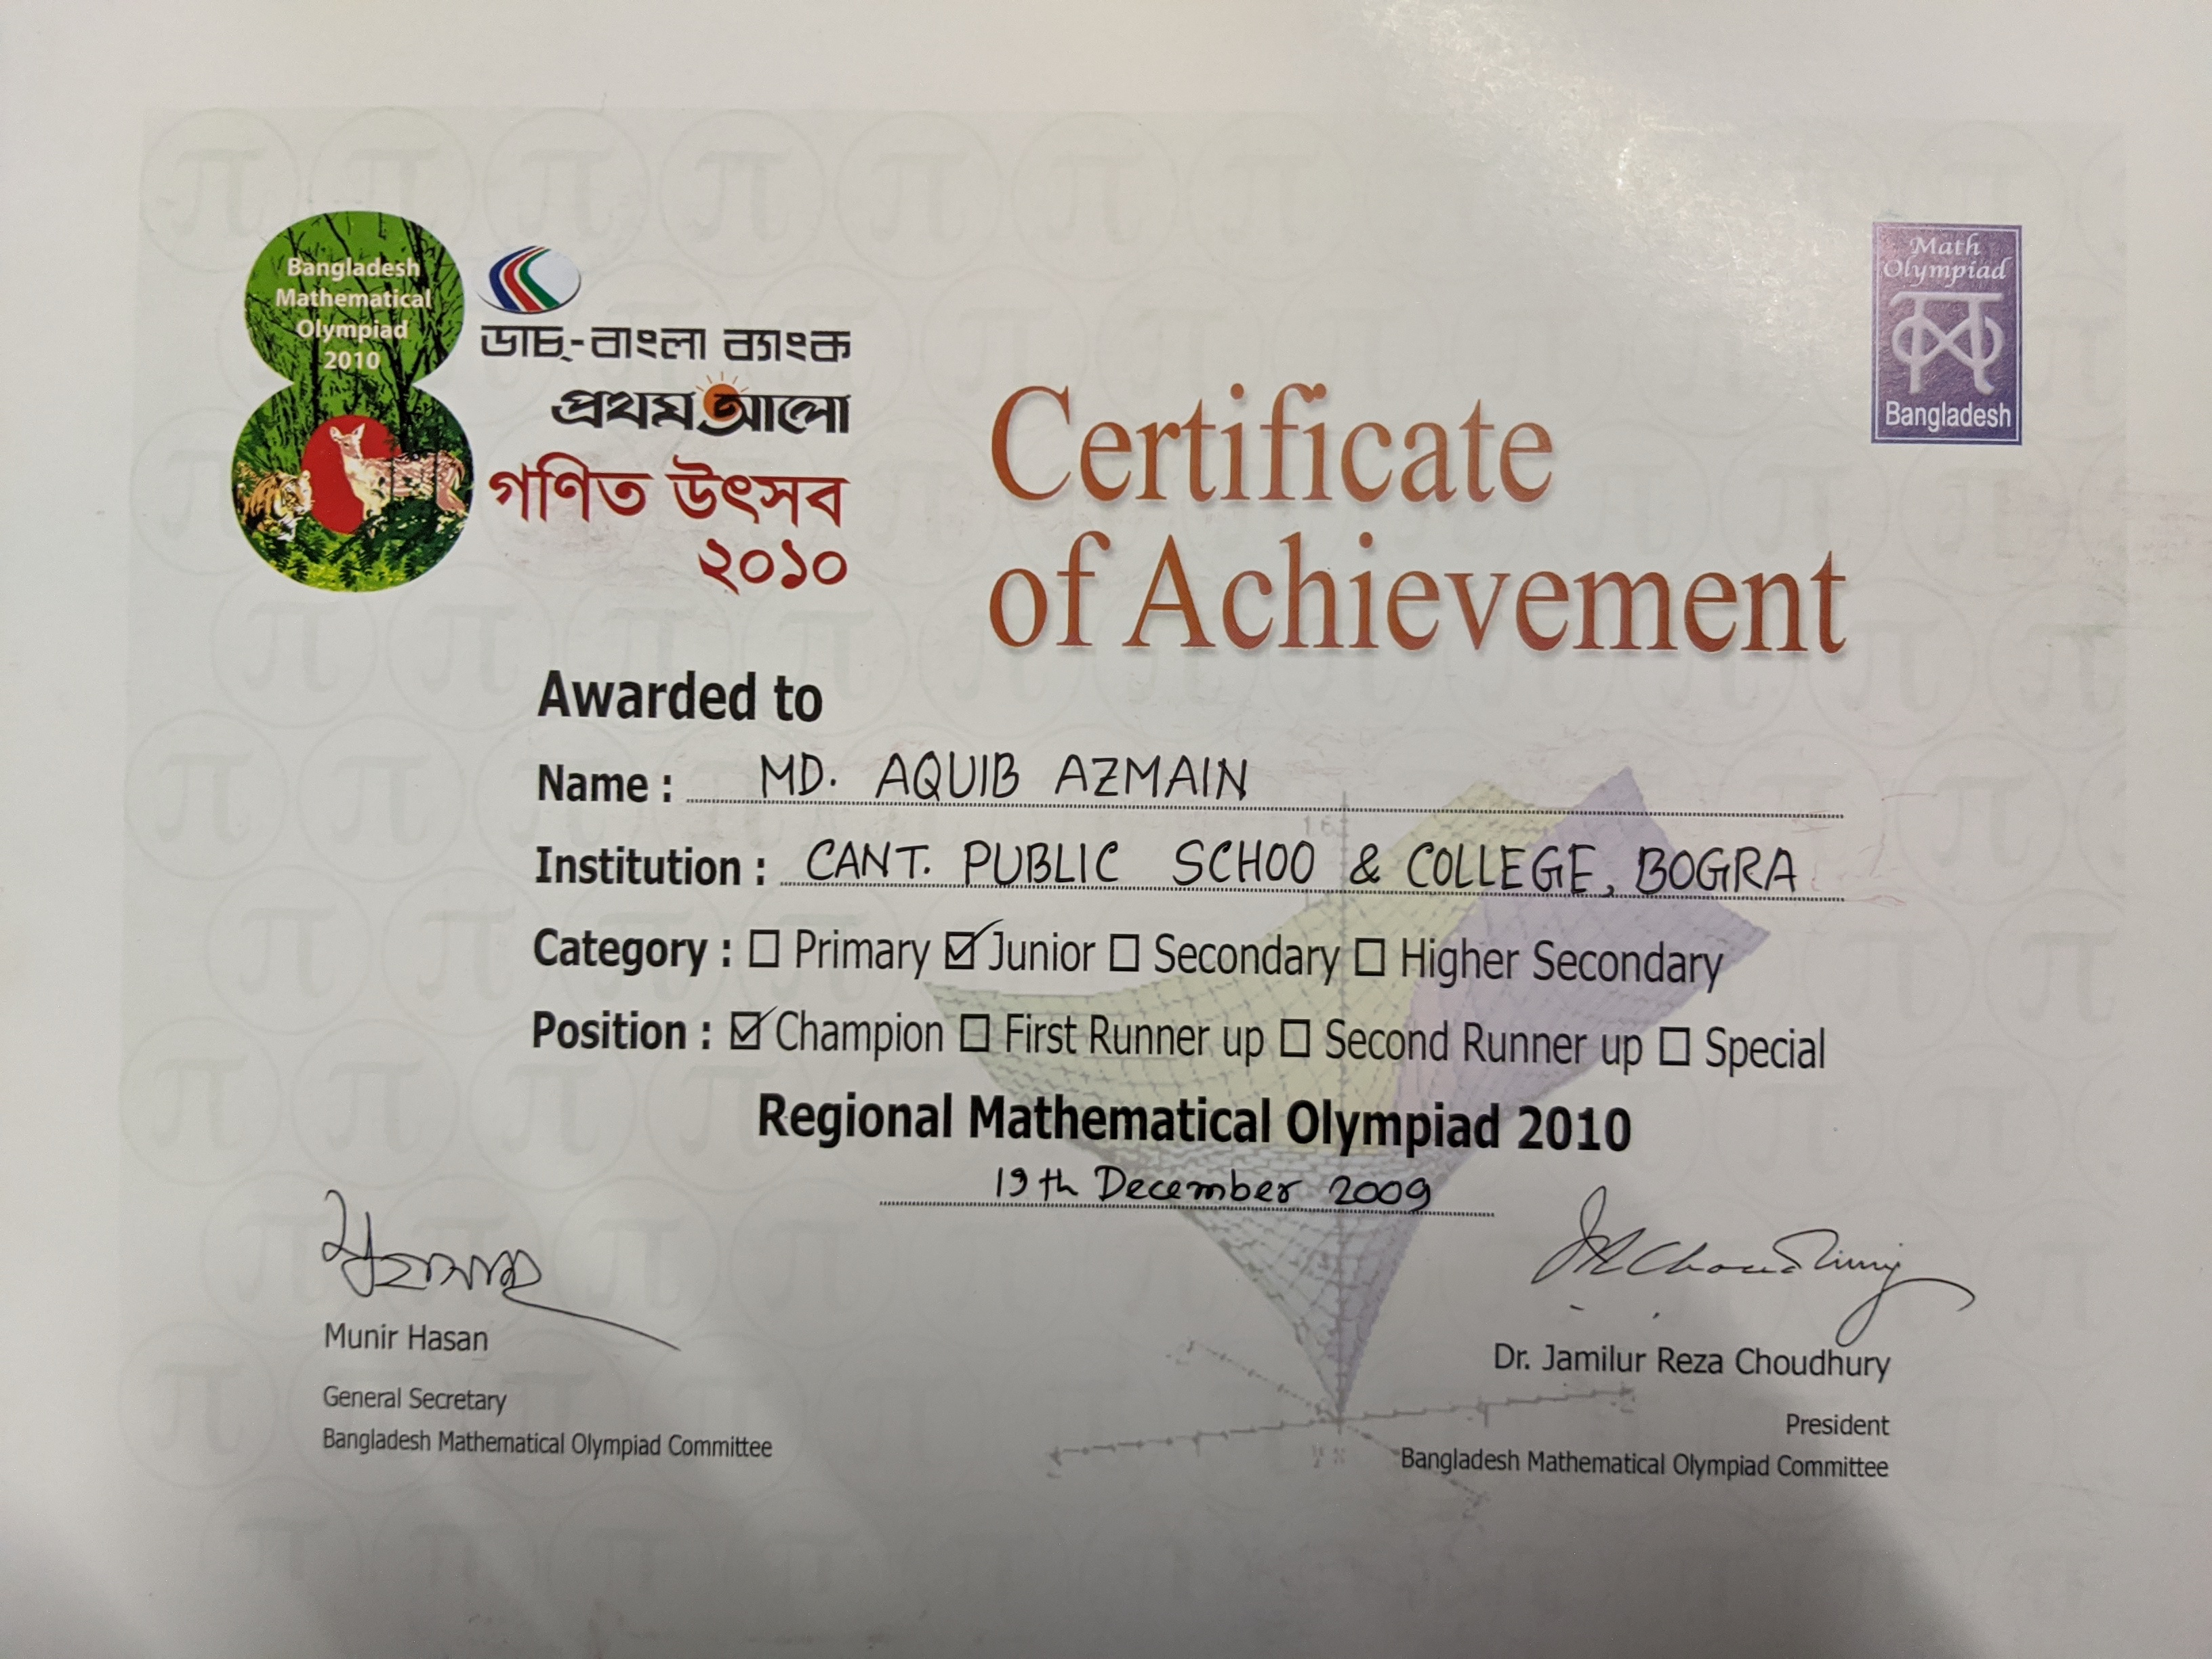 Bangladesh
Mathematical
Olympiad
2010
ডাচ্-বাংলা ব্যাংক
প্রথম আলো
গণিত উৎসব
২০১০
Math
Olympiad
Bangladesh
Certificate
of Achievement
Awarded to
Name : MD. AQUIB AZMAIN
Institution : CANT. PUBLIC SCHOO & COLLEGE, BOGRA
Category : ☐ Primary ☑ Junior ☐ Secondary ☐ Higher Secondary
Position : ☑ Champion ☐ First Runner up ☐ Second Runner up ☐ Special
Regional Mathematical Olympiad 2010
19th December 2009
Munir Hasan
General Secretary
Bangladesh Mathematical Olympiad Committee
JRChoudhury
Dr. Jamilur Reza Choudhury
President
Bangladesh Mathematical Olympiad Committee